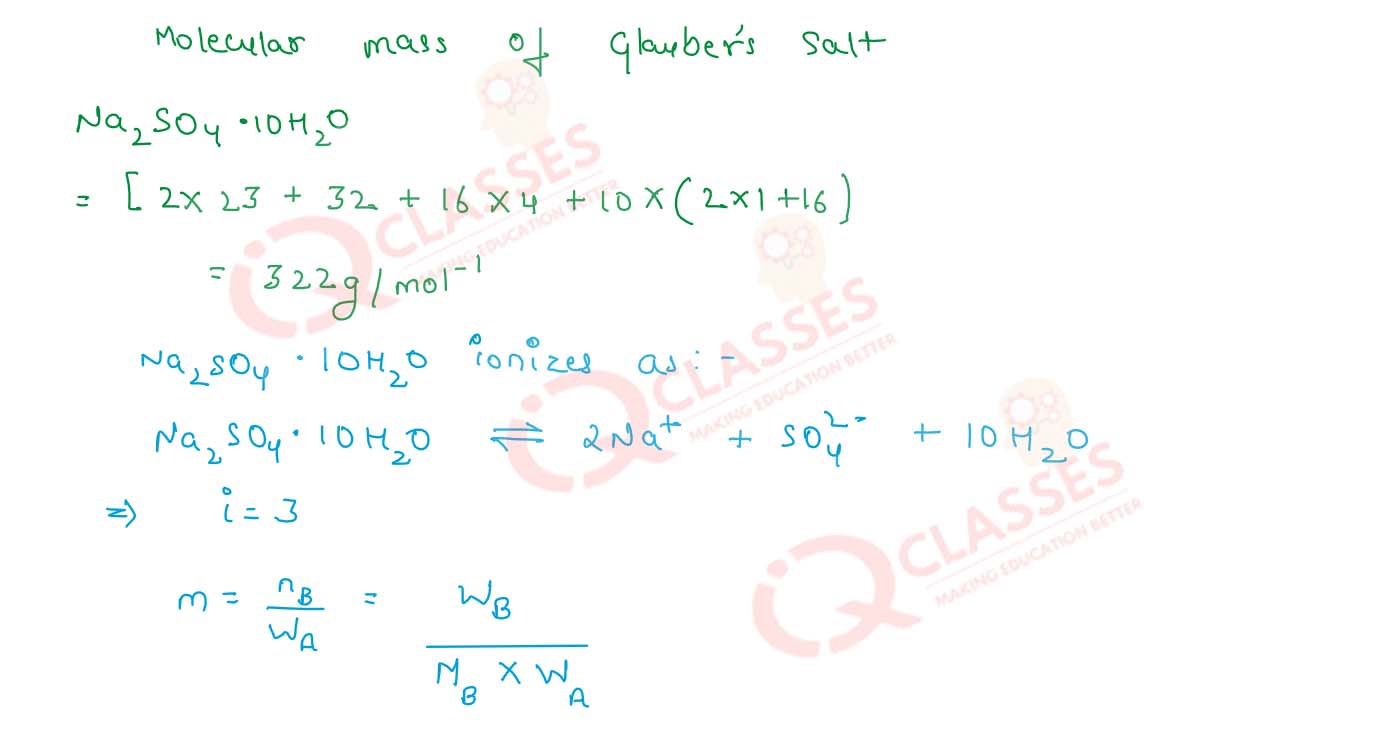 Molecular mass of Glauber's Salt
Na₂SO₄ · 10H₂O
= [ 2 × 23 + 32 + 16 × 4 + 10 × ( 2×1 + 16 )
= 322g/mol⁻¹
Na₂SO₄ · 10H₂O ionizes as :-
Na₂SO₄ · 10H₂O ⇌ 2Na⁺ + SO₄²⁻ + 10H₂O
⇒ i = 3
m = n_B / W_A = W_B / M_B × W_A
iQ CLASSES
MAKING EDUCATION BETTER
iQ CLASSES
MAKING EDUCATION BETTER
iQ CLASSES
MAKING EDUCATION BETTER